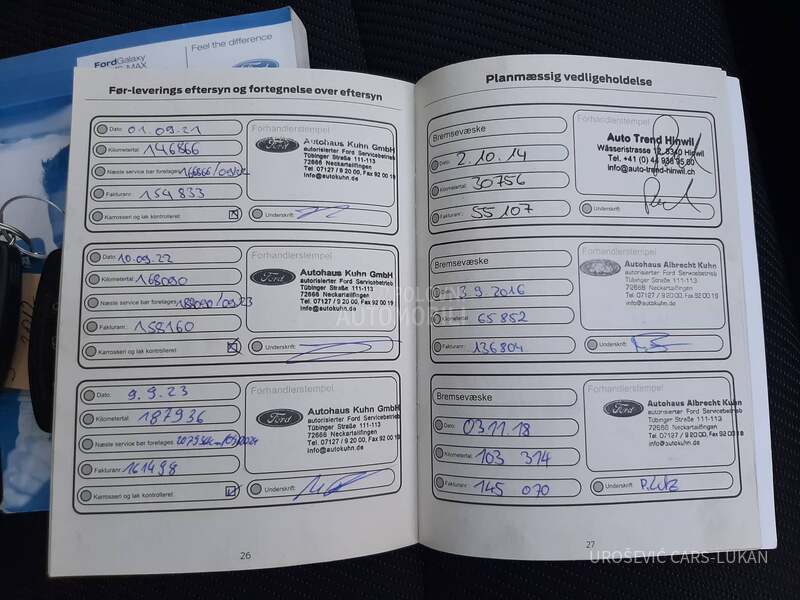 Feel the difference
FordGalaxy
Ford
Før-leverings eftersyn og fortegnelse over eftersyn
Dato: 01.09.21
Kilometertal: 146866
Næste service bør foretages:
Fakturanr.: 154833
Karrosseri og lak kontrolleret:
Forhandlerstempel
Ford
Autohaus Kuhn GmbH
autorisierter Ford Servicebetrieb
Tübinger Straße 111-113
72666 Neckartailfingen
info@autokuhn.de
Underskrift:
Dato: 10.09.22
Kilometertal: 168090
Næste service bør foretages: 188090/09/23
Fakturanr.: 158160
Karrosseri og lak kontrolleret:
Forhandlerstempel
Ford
Autohaus Kuhn GmbH
autorisierter Ford Servicebetrieb
Tübinger Straße 111-113
72666 Neckartailfingen
Tel. 07127 / 9 20 00, Fax 92 00 19
info@autokuhn.de
Underskrift:
Dato: 9.9.23
Kilometertal: 187936
Næste service bør foretages:
Fakturanr.: 161498
Karrosseri og lak kontrolleret:
Forhandlerstempel
Ford
Autohaus Kuhn GmbH
autorisierter Ford Servicebetrieb
Tübinger Straße 111-113
72666 Neckartailfingen
Tel. 07127 / 9 20 00, Fax 92 00 19
info@autokuhn.de
Underskrift:
26
Planmæssig vedligeholdelse
Bremsevæske
Dato: 2.10.14
Kilometertal: 30756
Fakturanr.: 55107
Forhandlerstempel
Auto Trend Hinwil
Wässeristrasse 12, 8340 Hinwil
info@auto-trend-hinwil.ch
Underskrift:
Bremsevæske
Dato: 13.9.2016
Kilometertal: 65852
Fakturanr.: 136804
Forhandlerstempel
Autohaus Albrecht Kuhn
autorisierter Ford Servicebetrieb
Tübinger Straße 111-113
72666 Neckartailfingen
Tel. 07127 / 9 20 00, Fax 92 00 19
info@autokuhn.de
Underskrift:
Bremsevæske
Dato: 03.11.18
Kilometertal: 103 314
Fakturanr.: 145 070
Forhandlerstempel
Ford
Autohaus Albrecht Kuhn
autorisierter Ford Servicebetrieb
Tübinger Straße 111-113
72666 Neckartailfingen
Tel. 07127 / 9 20 00, Fax 92 00 19
info@autokuhn.de
Underskrift:
27
POLOVNI
AUTOMOBILI
UROŠEVIĆ CARS-LUKAN